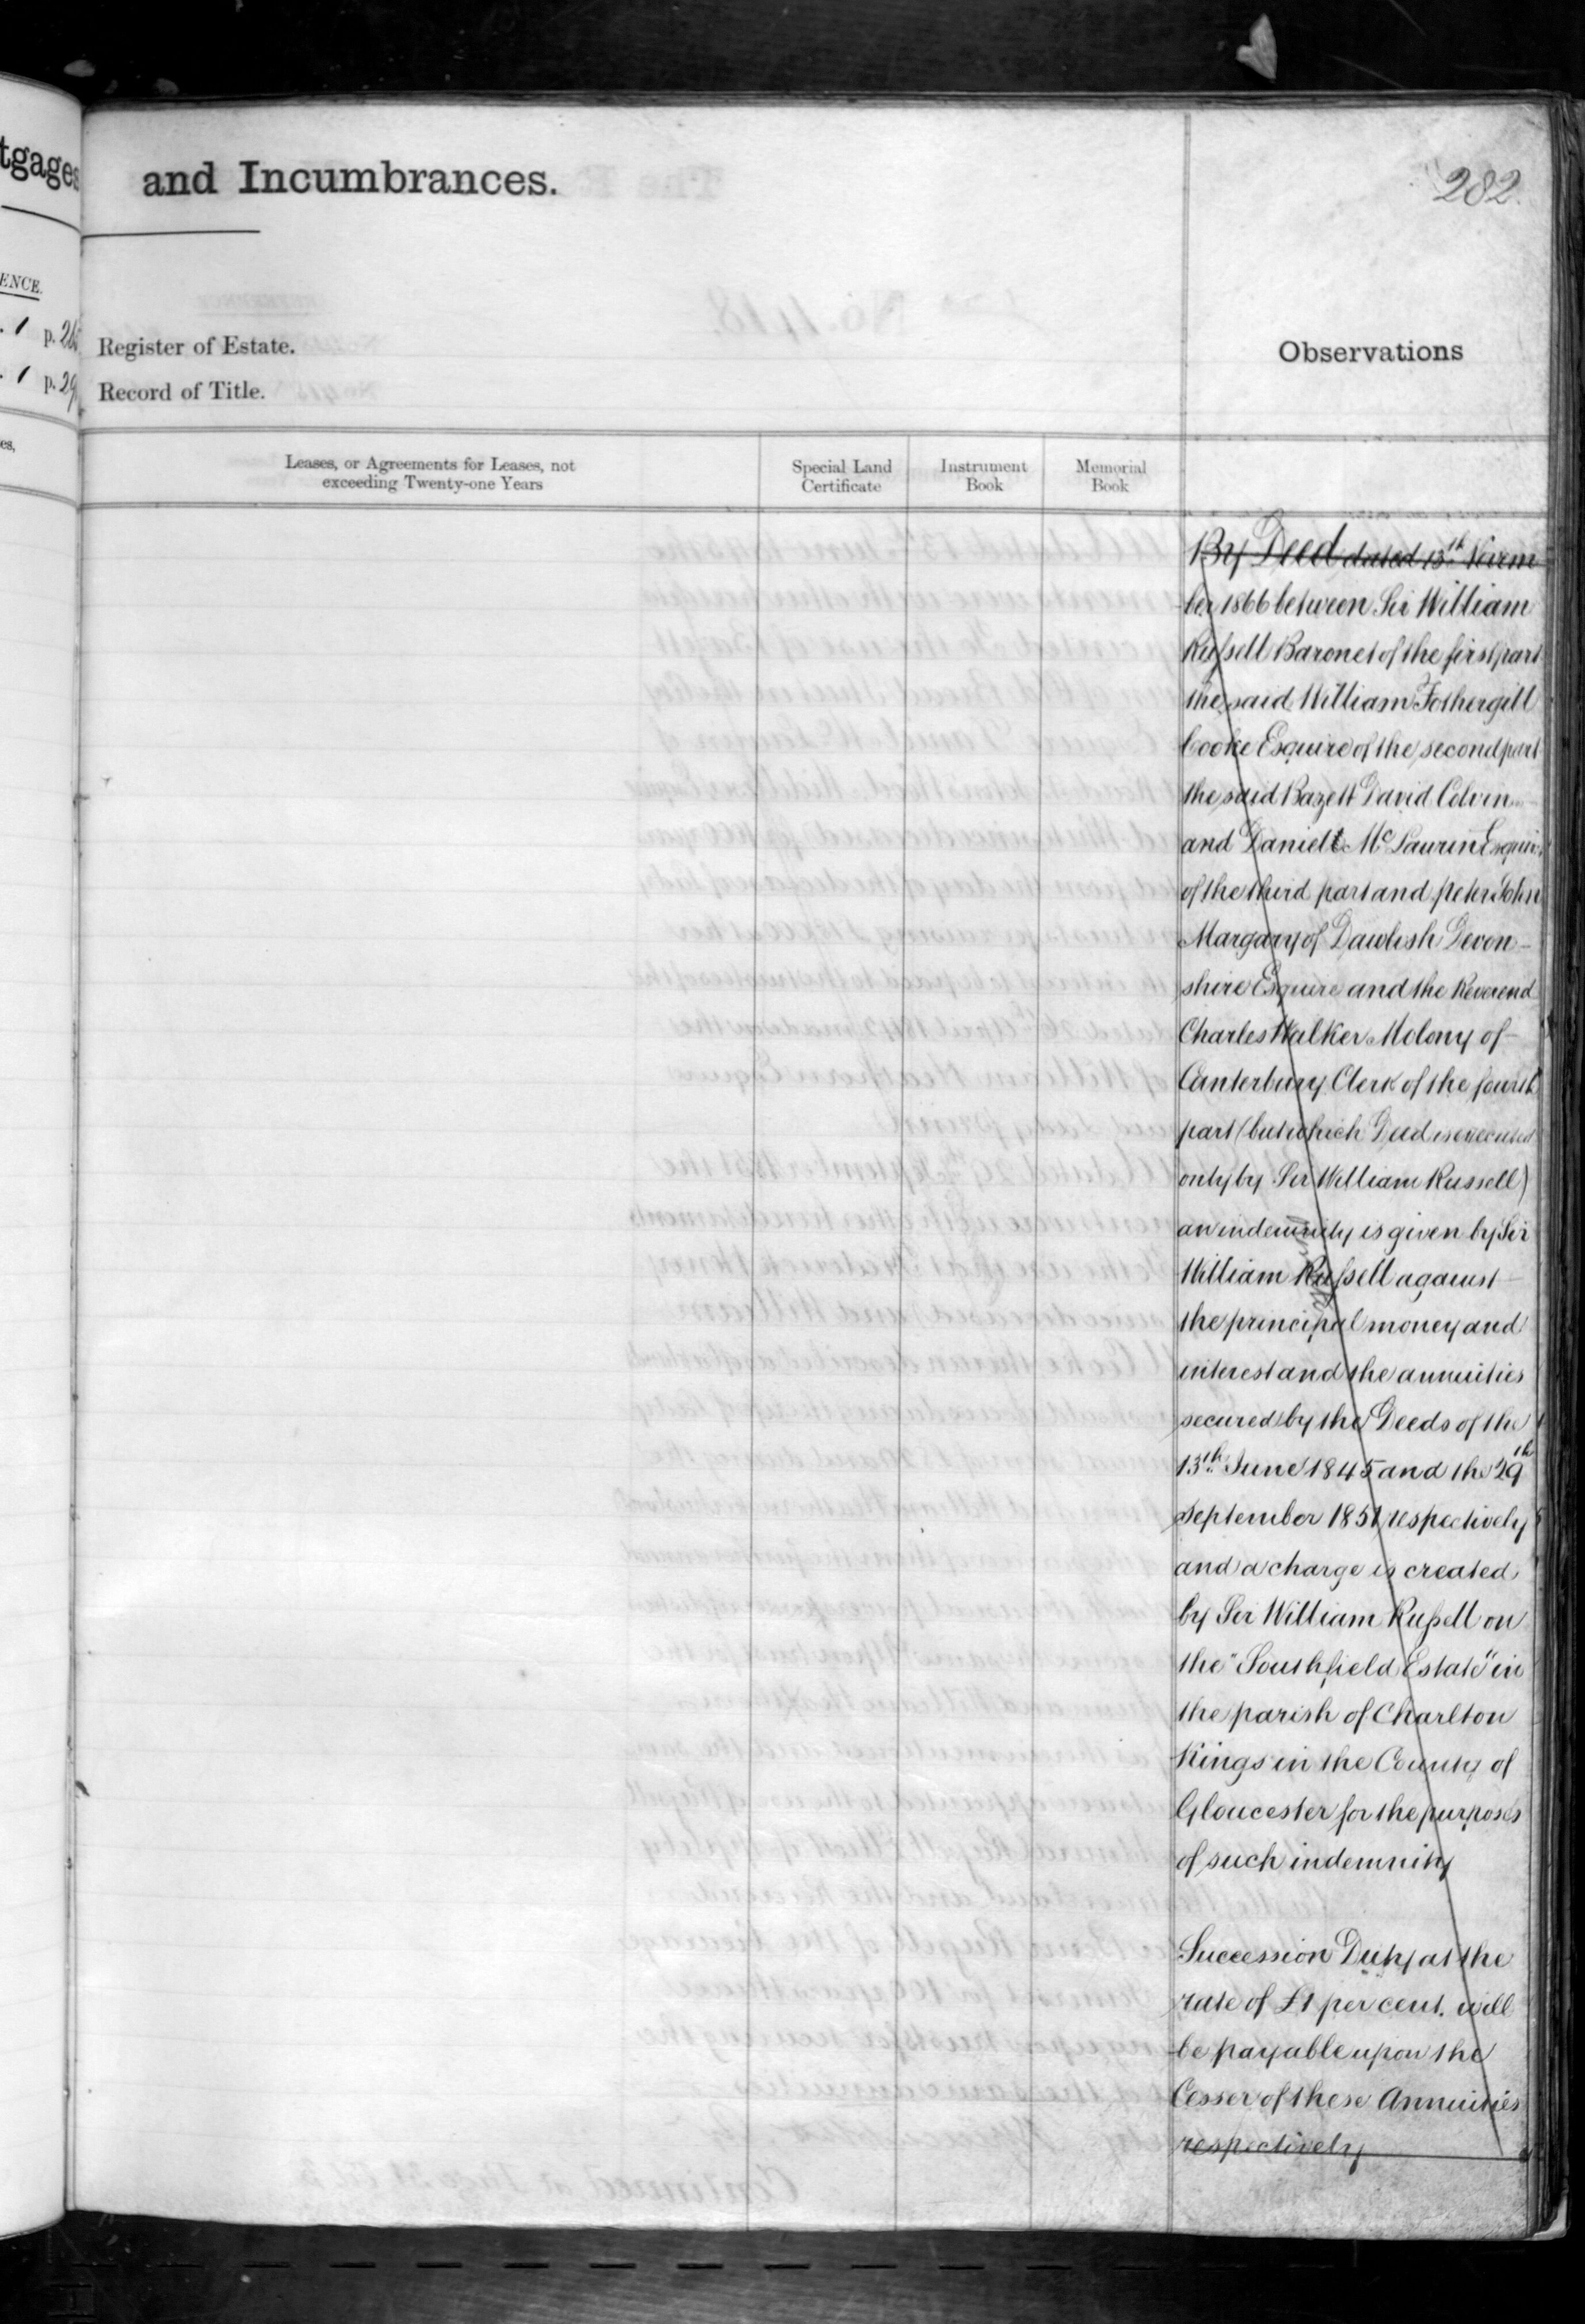 tgages
ENCE.
. 1 p. 26
. 1 p. 29
es,
and Incumbrances.
282.
Register of Estate.
Record of Title.
Observations
Leases, or Agreements for Leases, not
exceeding Twenty-one Years
Special Land
Certificate
Instrument
Book
Memorial
Book
By Deed dated 13th Novem
ber 1866 between Sir William
Russell Baronet of the first part
the said William Fothergill
Cooke Esquire of the second part
the said Bazett David Colvin
and Daniell McLaurin Esquire
of the third part and Peter John
Margary of Dawlish Devon-
shire Esquire and the Reverend
Charles Walker Molony of
Canterbury Clerk of the fourth
part (but which Deed is executed
only by Sir William Russell)
an indemnity is given by Sir
William Russell against
the principal money and
interest and the annuities
secured by the Deeds of the
13th June 1845 and the 29th
September 1851 respectively
and a charge is created
by Sir William Russell on
the "Southfield Estate" in
the parish of Charlton
Kings in the County of
Gloucester for the purposes
of such indemnity
Succession Duty at the
rate of £1 per cent. will
be payable upon the
Cesser of these Annuities
respectively